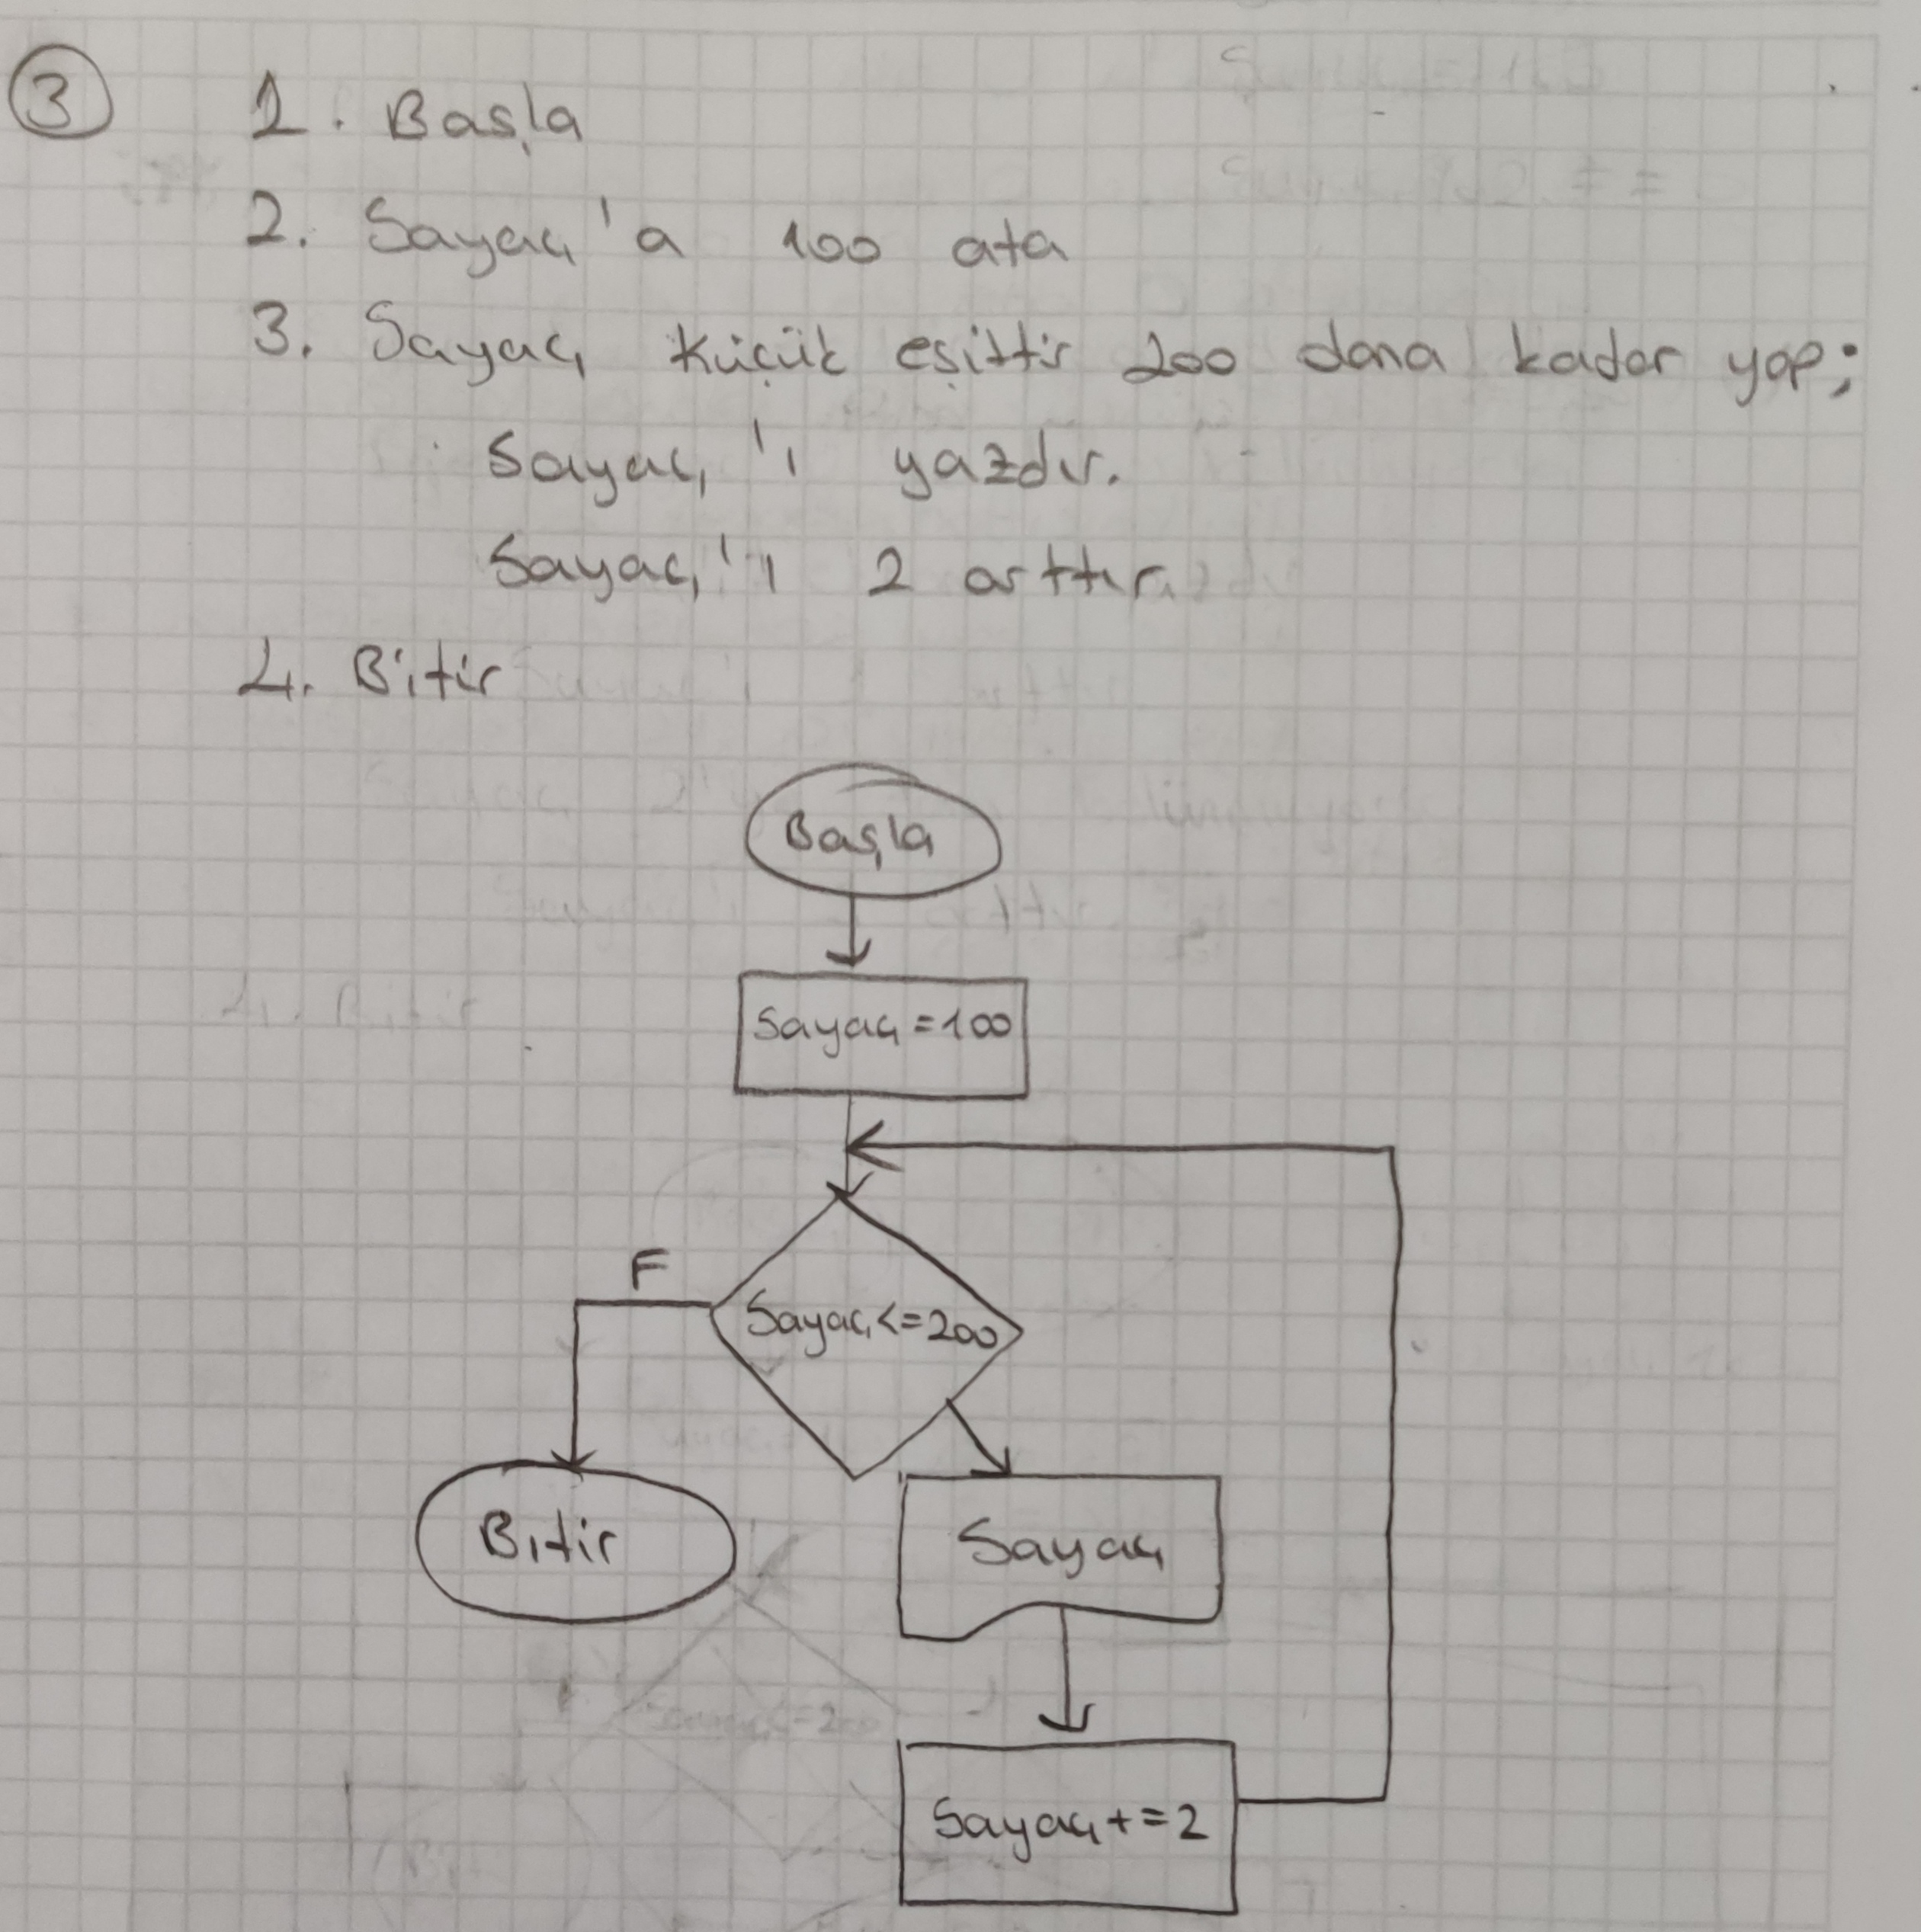 3
1. Başla
2. Sayaç'a 100 ata
3. Sayaç küçük eşittir 200 dana kadar yap;
Sayaç'ı yazdır.
Sayaç'ı 2 arttır.
4. Bitir
Başla
Sayaç=100
F
Sayaç<=200
Bitir
Sayaç
Sayaç+=2